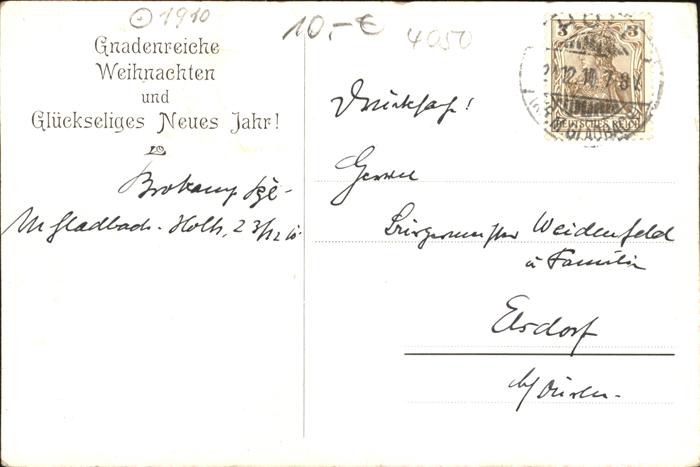 1910
10,-€
4050
Gnadenreiche
Weihnachten
und
Glückseliges Neues Jahr!
Brokamp
M Gladbach-Holth, 23/12 10.
Drucksache!
Herrn
Bürgermeister Weidenfeld
u Familie
Elsdorf
b/ Düren.
3 3
DEUTSCHES REICH
12.10.7-8V